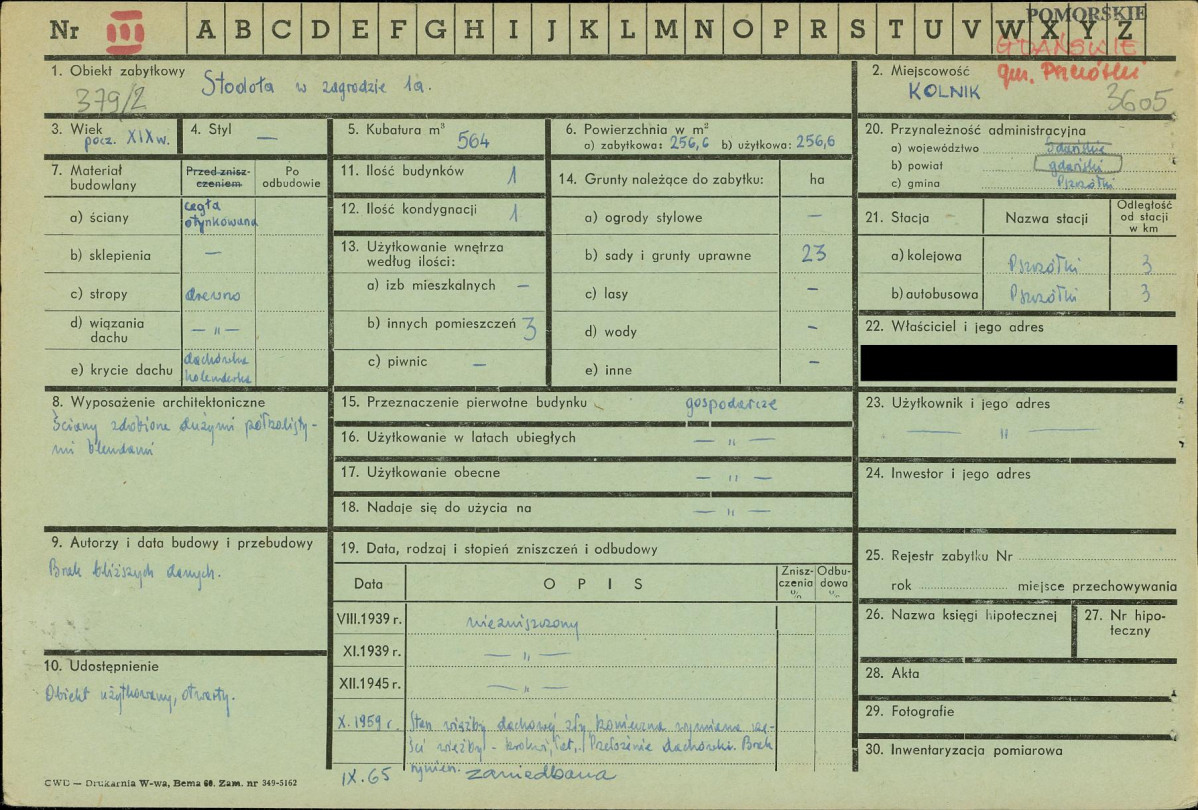 Nr III A B C D E F G H I J K L M N O P R S T U V W X Y Z
POMORSKIE
GDAŃSKIE
gm. Pszczółki
1. Obiekt zabytkowy
Stodoła w zagrodzie 1a.
379/2
2. Miejscowość
KOLNIK
3605
3. Wiek
pocz. XIX w.
4. Styl
—
5. Kubatura m³
564
6. Powierzchnia w m²
a) zabytkowa: 256,6 b) użytkowa: 256,6
7. Materiał budowlany
Przed zniszczeniem
Po odbudowie
a) ściany
cegła
otynkowana
b) sklepienia —
c) stropy drewno
d) wiązania dachu — „ —
e) krycie dachu
dachówka
holenderka
8. Wyposażenie architektoniczne
Ściany zdobione dużymi półkolisty-
mi blendami
9. Autorzy i data budowy i przebudowy
Brak bliższych danych.
10. Udostępnienie
Obiekt użytkowany, otwarty.
11. Ilość budynków 1
12. Ilość kondygnacji 1
13. Użytkowanie wnętrza
według ilości:
a) izb mieszkalnych —
b) innych pomieszczeń 3
c) piwnic —
14. Grunty należące do zabytku: ha
a) ogrody stylowe —
b) sady i grunty uprawne 23
c) lasy —
d) wody —
e) inne —
15. Przeznaczenie pierwotne budynku gospodarcze
16. Użytkowanie w latach ubiegłych — „ —
17. Użytkowanie obecne — „ —
18. Nadaje się do użycia na — „ —
19. Data, rodzaj i stopień zniszczeń i odbudowy
Data
O P I S
Znisz-
czenia
%
Odbu-
dowa
%
VIII.1939 r. niezniszczony
XI.1939 r. — „ —
XII.1945 r. — „ —
X.1959 r. Stan więźby dachowej zły konieczna wymiana czę-
ści więźby - krokwi, łat, Przełożenie dachówki. Brak
rynien.
IX.65 zaniedbana
20. Przynależność administracyjna
a) województwo Gdańskie
b) powiat gdański
c) gmina Pszczółki
21. Stacja
Nazwa stacji
Odległość
od stacji
w km
a) kolejowa Pszczółki 3
b) autobusowa Pszczółki 3
22. Właściciel i jego adres
23. Użytkownik i jego adres
— „ —
24. Inwestor i jego adres
25. Rejestr zabytku Nr
rok miejsce przechowywania
26. Nazwa księgi hipotecznej
27. Nr hipo-
teczny
28. Akta
29. Fotografie
30. Inwentaryzacja pomiarowa
CWD — Drukarnia W-wa, Bema 60. Zam. nr 349-5162